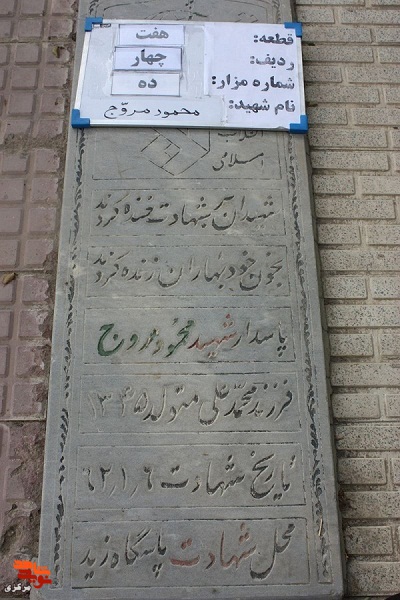 قطعه: هفت
ردیف: چهار
شماره مزار: ده
نام شهید: محمود مروّج
انقلاب
اسلامی
شهیدان بر شهادت خنده کردند
بخون خود بهاران زنده کردند
پاسدار شهید محمود مروج
فرزند محمد علی متولد ۱۳۴۵
تاریخ شهادت ۶۲٫۱٫۶
محل شهادت پاسگاه زید
نوید
مرکزی